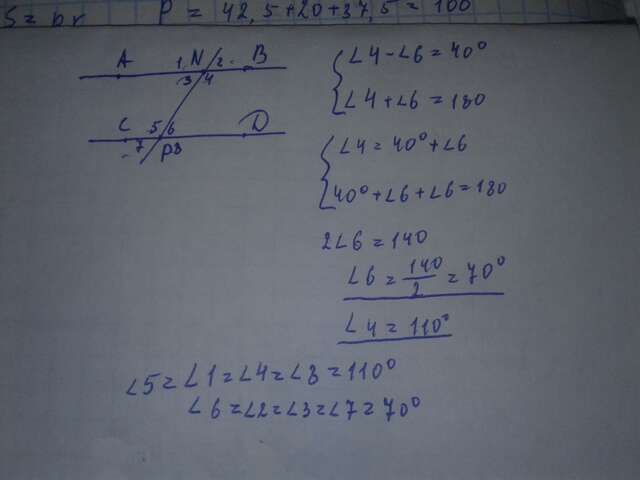 S = pr P = 42,5+20+37,5 = 100
A 1 N 2 B
3 4
C 5 6 D
7 P 8
∠4-∠6=40°
∠4+∠6=180
∠4=40°+∠6
40°+∠6+∠6=180
2∠6=140
∠6=140/2=70°
∠4=110°
∠5=∠1=∠4=∠8=110°
∠6=∠2=∠3=∠7=70°